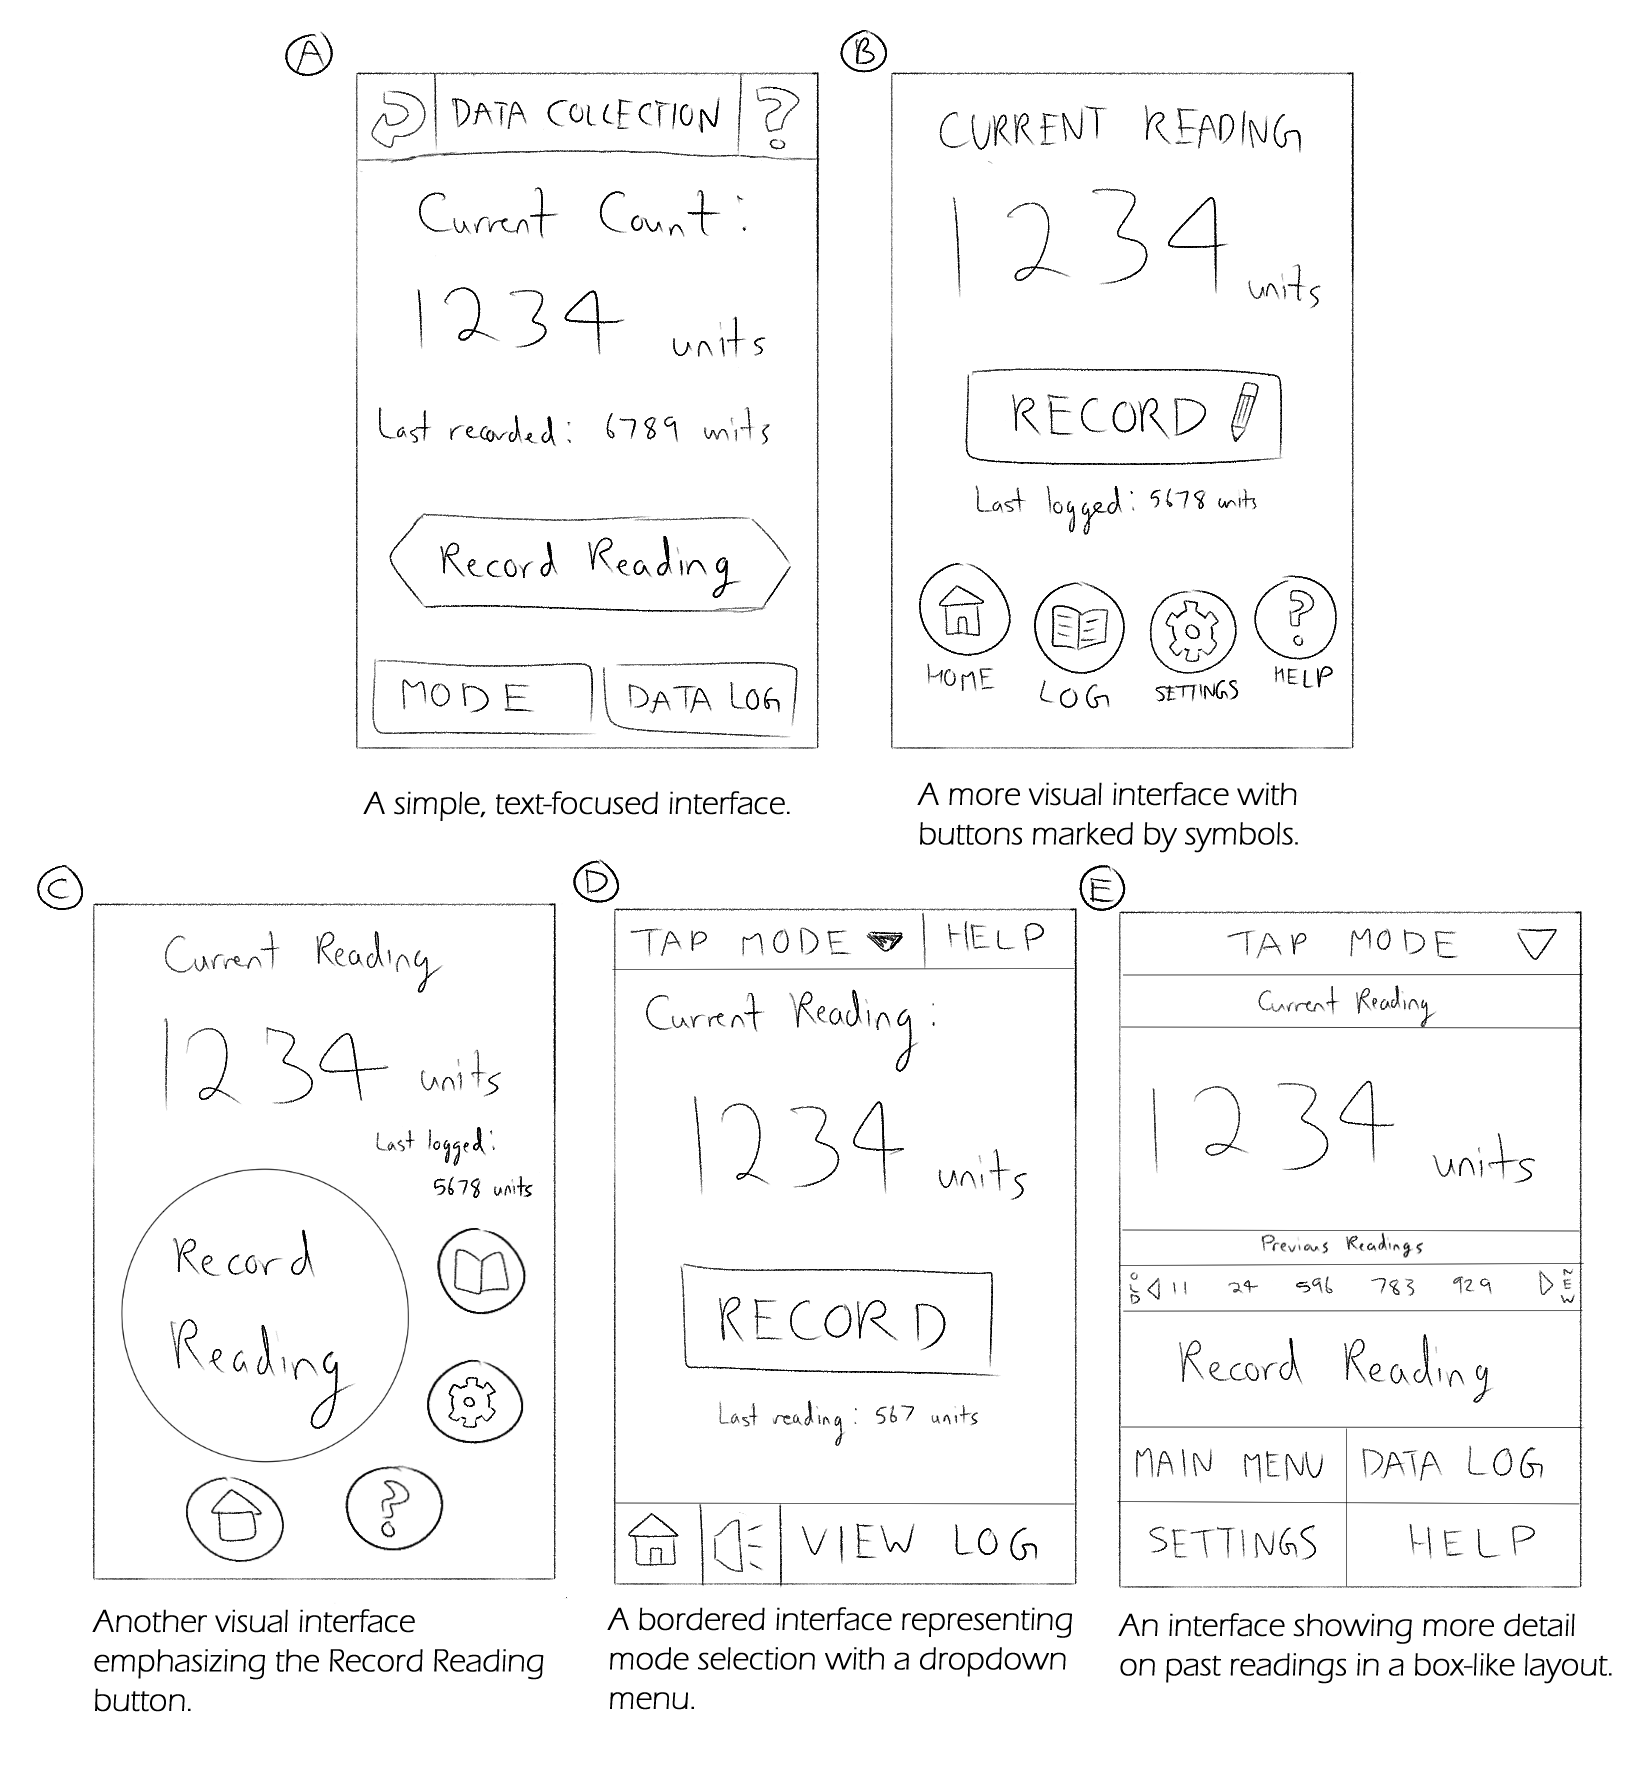 A
DATA COLLECTION ?
Current Count:
1234 units
Last recorded: 6789 units
Record Reading
MODE DATA LOG
A simple, text-focused interface.
B
CURRENT READING
1234 units
RECORD
Last logged: 5678 units
?
HOME LOG SETTINGS HELP
A more visual interface with
buttons marked by symbols.
C
Current Reading
1234 units
Last logged:
5678 units
Record
Reading
?
Another visual interface
emphasizing the Record Reading
button.
D
TAP MODE HELP
Current Reading:
1234 units
RECORD
Last reading: 567 units
VIEW LOG
A bordered interface representing
mode selection with a dropdown
menu.
E
TAP MODE
Current Reading
1234 units
Previous Readings
OLD 11 24 596 783 929 NEW
Record Reading
MAIN MENU DATA LOG
SETTINGS HELP
An interface showing more detail
on past readings in a box-like layout.